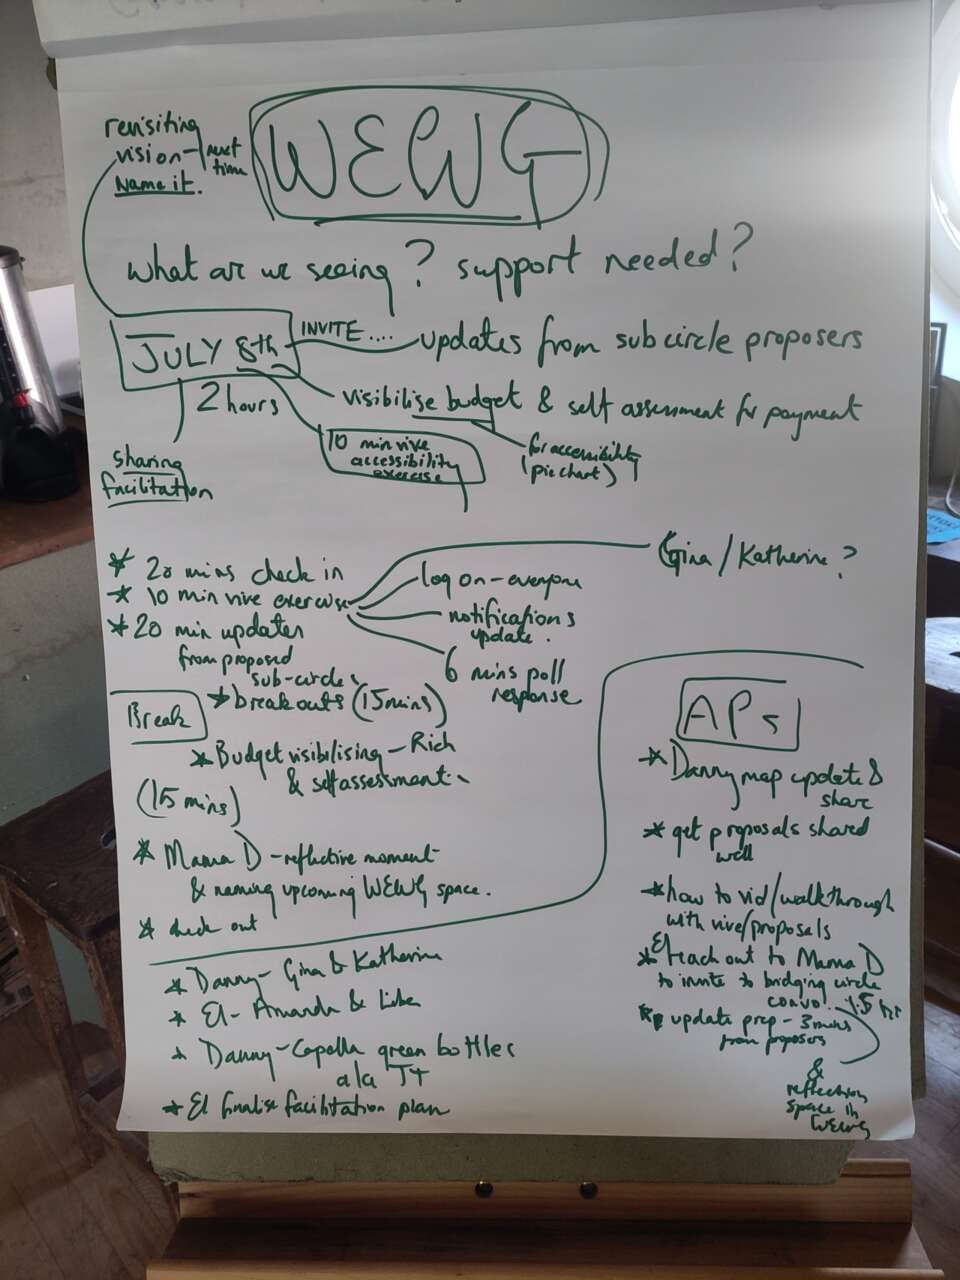 WEWG
revisiting
vision - next
time
Name it.
What are we seeing? support needed?
JULY 8th
INVITE....
updates from subcircle proposers
2 hours
visibilise budget & self assessment for payment
10 min vive
accessibility
exercise
for accessibility
(pie chart)
sharing
facilitation
* 20 mins check in
* 10 min vive exercise
Gina/Katherine?
log on - everyone
notifications
update.
6 mins poll
response
* 20 min updates
from proposed
sub-circles
* breakouts (15mins)
Break
* Budget visibilising - Rich
& self assessment
(15 mins)
* Mama D - reflective moment
& naming upcoming WEWG space.
* check out
* Danny - Gina & Katherine
* El - Amanda &
* Danny - Capella green bottles
a/a
* El finalise facilitation plan
APs
* Danny map update &
share
* get proposals shared
well
* how to vid/walkthrough
with vive/proposals
* El reach out to Mama D
to invite to bridging circle
convo. 1.5 hr
* update prep - 3 mins
from proposers
&
reflection
space in
WEWG